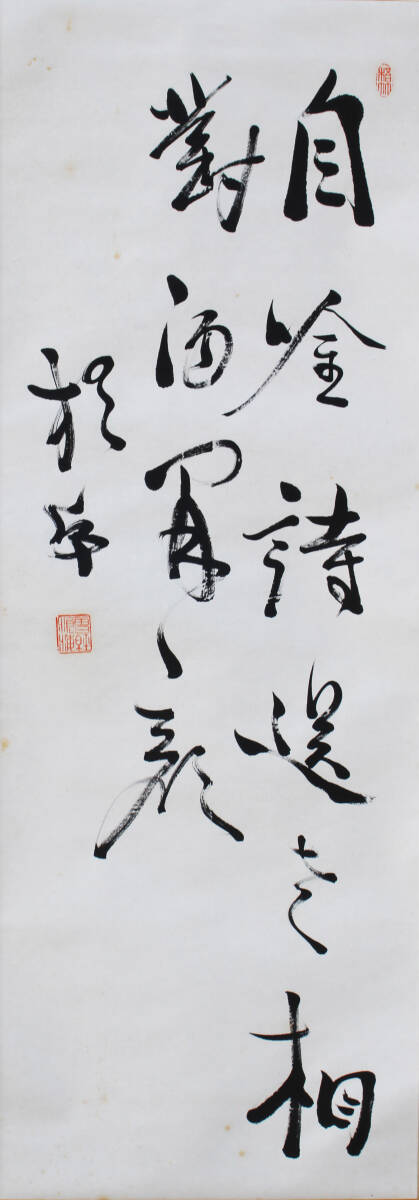 自吟詩送老相
對酒開顏